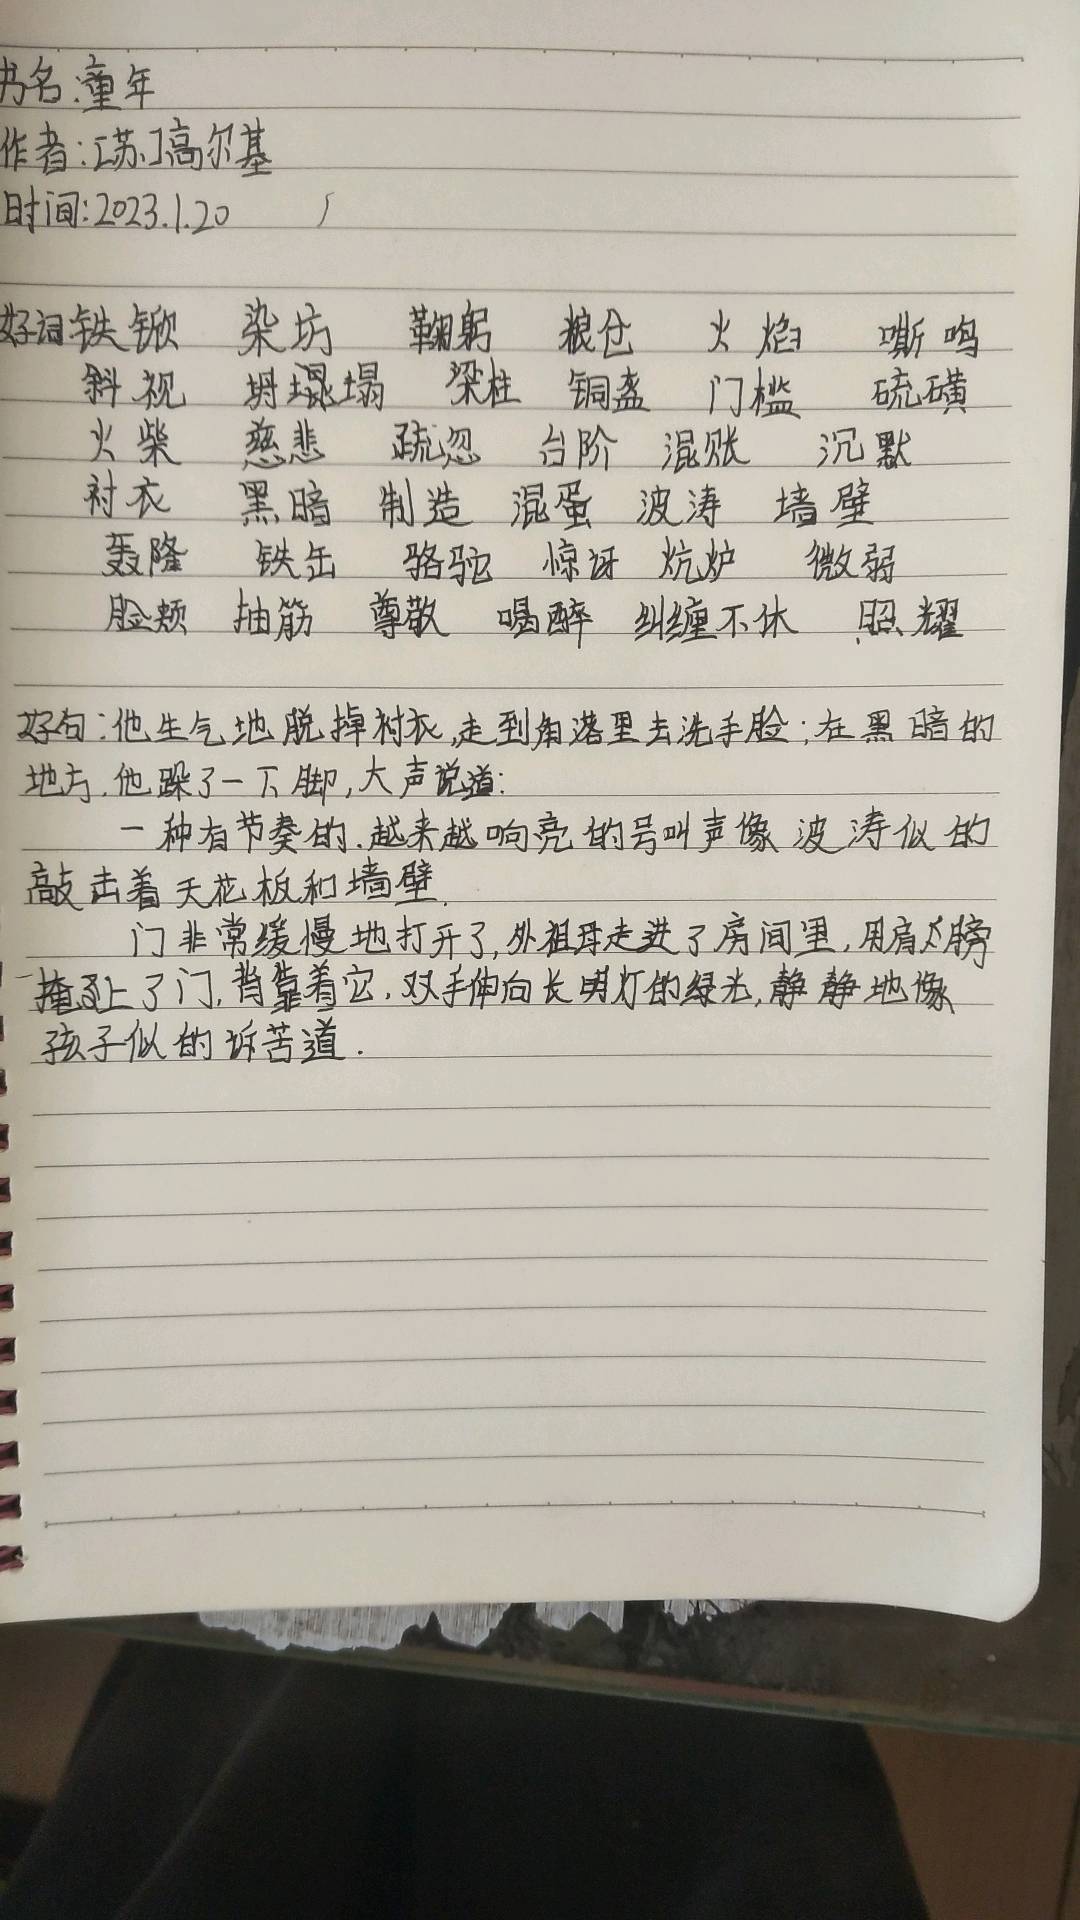 书名:童年
作者:[苏]高尔基
时间:2023.1.20
好词:铁锨 染坊 鞠躬 粮仓 火焰 嘶鸣
斜视 坍塌 梁柱 铜盏 门槛 硫磺
火柴 慈悲 疏忽 台阶 混账 沉默
衬衣 黑暗 制造 混蛋 波涛 墙壁
轰隆 铁缶 骆驼 惊讶 炕炉 微弱
脸颊 抽筋 尊敬 喝醉 纠缠不休 照耀
好句:他生气地脱掉衬衣,走到角落里去洗手脸;在黑暗的
地方.他跺了一下脚,大声说道:
一种有节奏的.越来越响亮的号叫声像波涛似的
敲击着天花板和墙壁.
门非常缓慢地打开了,外祖母走进了房间里,用肩膀
掩上了门,背靠着它,双手伸向长明灯的绿光,静静地像
孩子似的诉苦道.